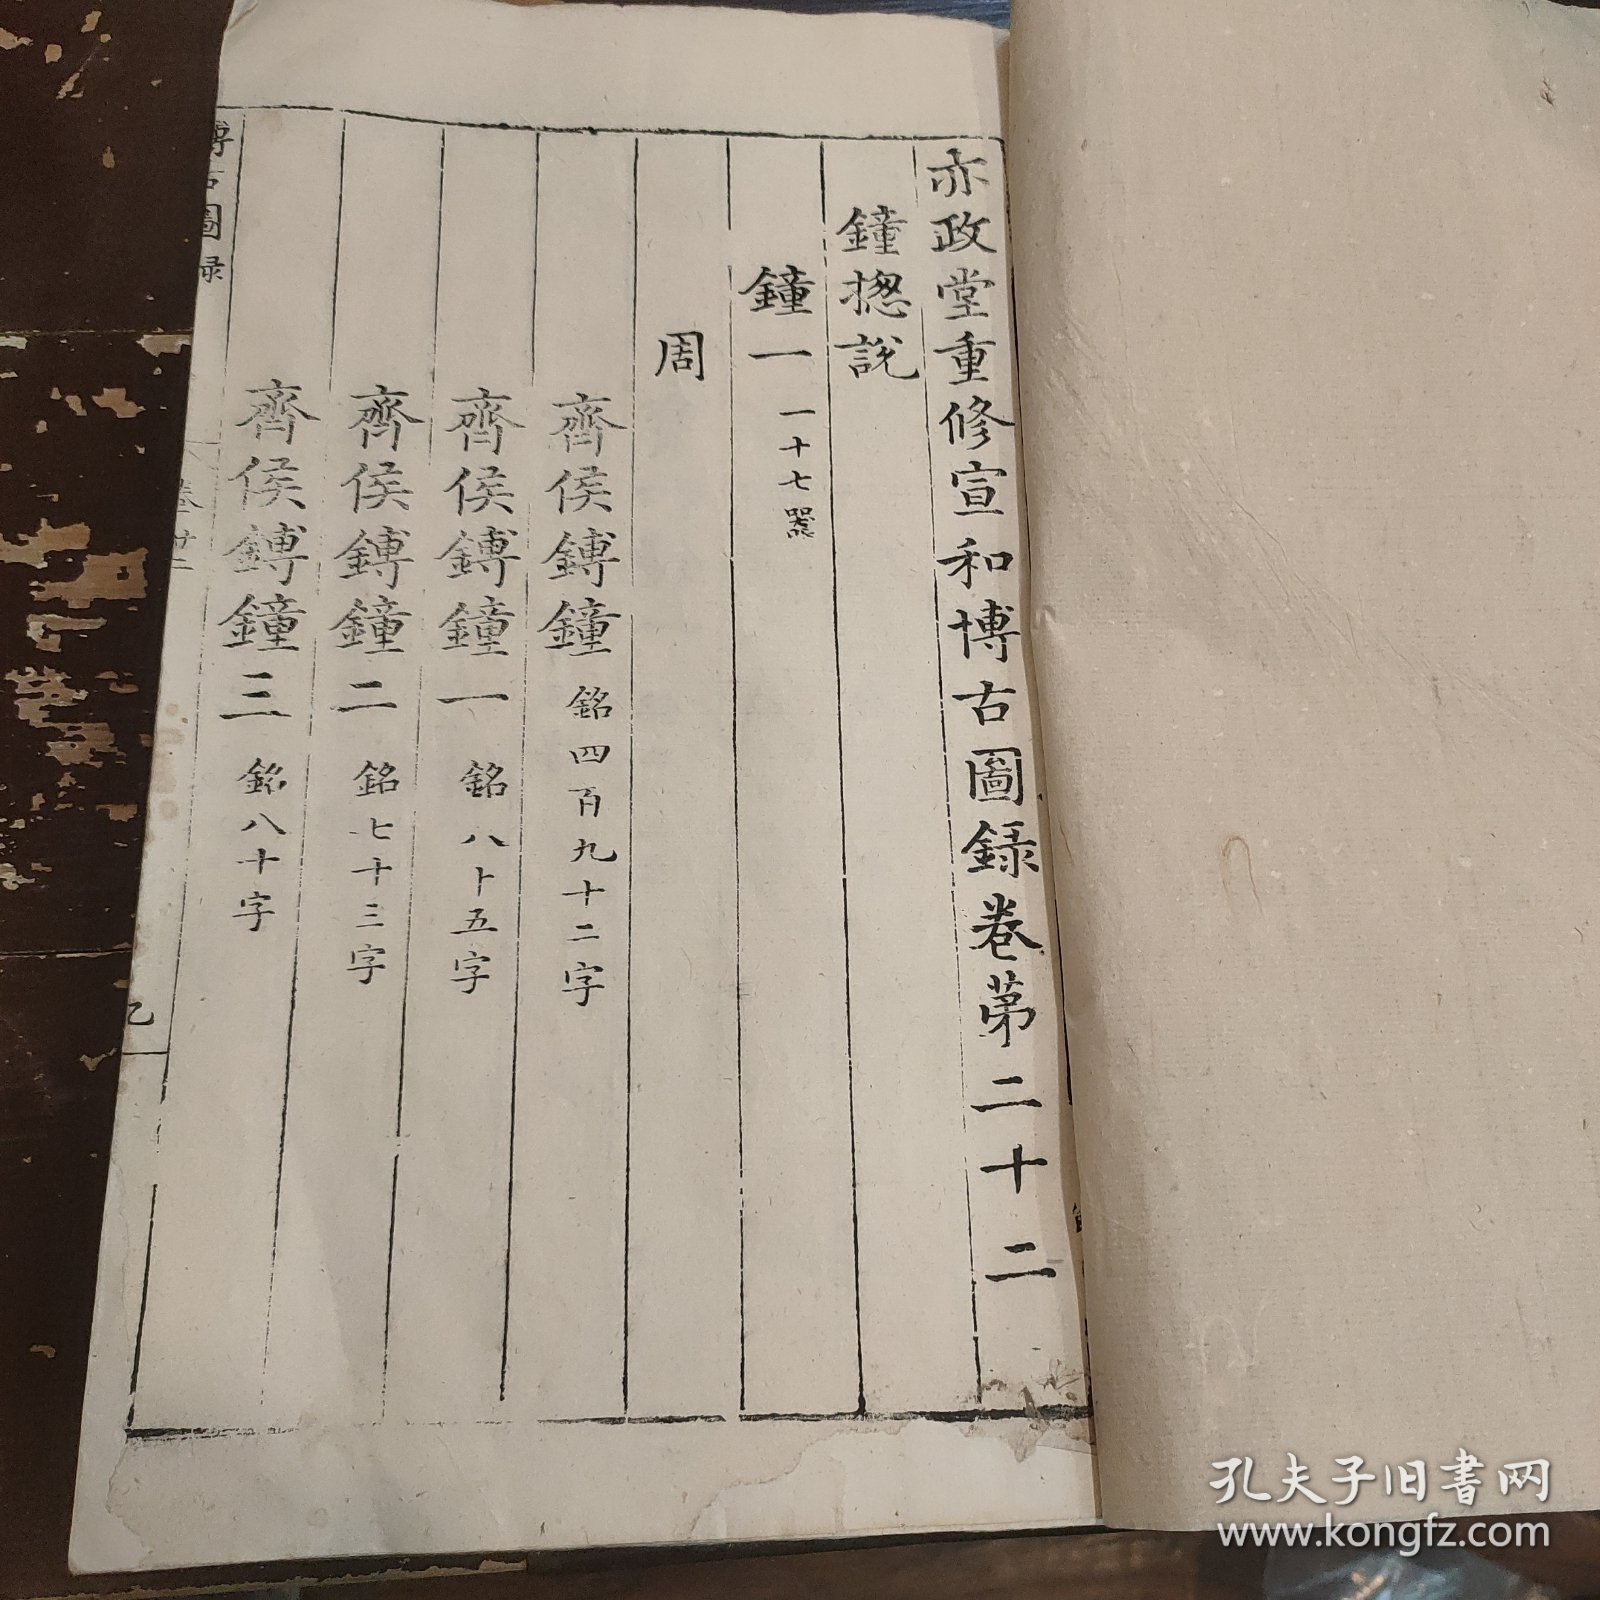 亦政堂重修宣和博古圖錄卷第二十二
鐘揔說
鐘一 一十七器
周
齊侯鎛鐘 銘四百九十二字
齊侯鎛鐘一 銘八十五字
齊侯鎛鐘二 銘七十三字
齊侯鎛鐘三 銘八十字
博古圖录
卷廿二
孔夫子旧书网
www.kongfz.com